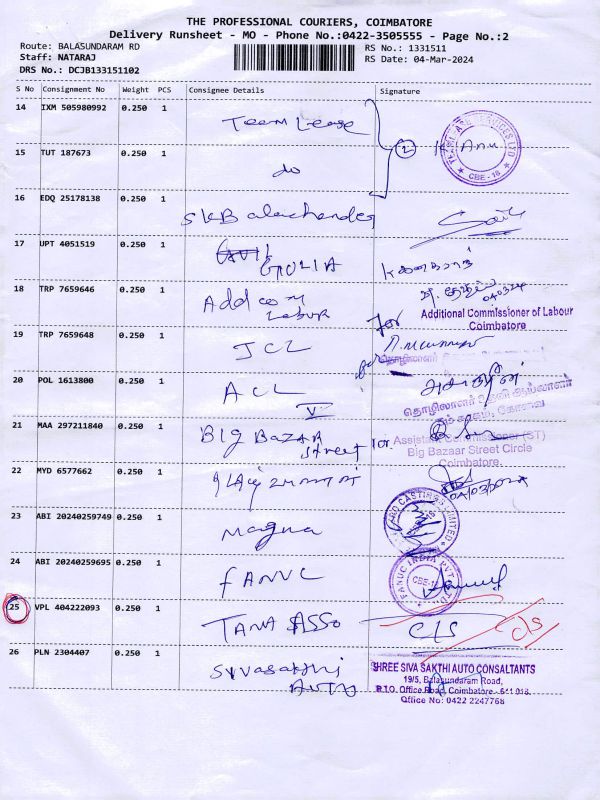 THE PROFESSIONAL COURIERS, COIMBATORE
Delivery Runsheet - MO - Phone No.:0422-3505555 - Page No.:2
Route: BALASUNDARAM RD
Staff: NATARAJ
DRS No.: DCJB133151102
RS No.: 1331511
RS Date: 04-Mar-2024
S No Consignment No Weight PCS Consignee Details Signature
14 IXM 505980992 0.250 1 Team Lease
TEAMLEASE SERVICES LTD
CBE-18
Anu
2
15 TUT 187673 0.250 1 do
16 EDQ 25178138 0.250 1 SKB alachander
17 UPT 4051519 0.250 1 GOLIA
18 TRP 7659646 0.250 1 Add com
Labur
040324
for
Additional Commissioner of Labour
Coimbatore
19 TRP 7659648 0.250 1 JCL
20 POL 1613800 0.250 1 ACL
V
21 MAA 297211840 0.250 1 Big Bazar
Street
for Assistant Commissioner (ST)
Big Bazaar Street Circle
Coimbatore.
22 MYD 6577662 0.250 1
04/03/2024
23 ABI 20240259749 0.250 1 Magna
CASTINGS LIMITED
24 ABI 20240259695 0.250 1 FANUC
FANUC INDIA PVT LTD
CBE
25 VPL 404222093 0.250 1 TAMA ASSO
C/S
C/S
26 PLN 2304407 0.250 1 Sivasakthi
Auto
SHREE SIVA SAKTHI AUTO CONSULTANTS
19/5, Balasundaram Road,
R.T.O. Office Road, Coimbatore - 641 018.
Office No: 0422 2247768